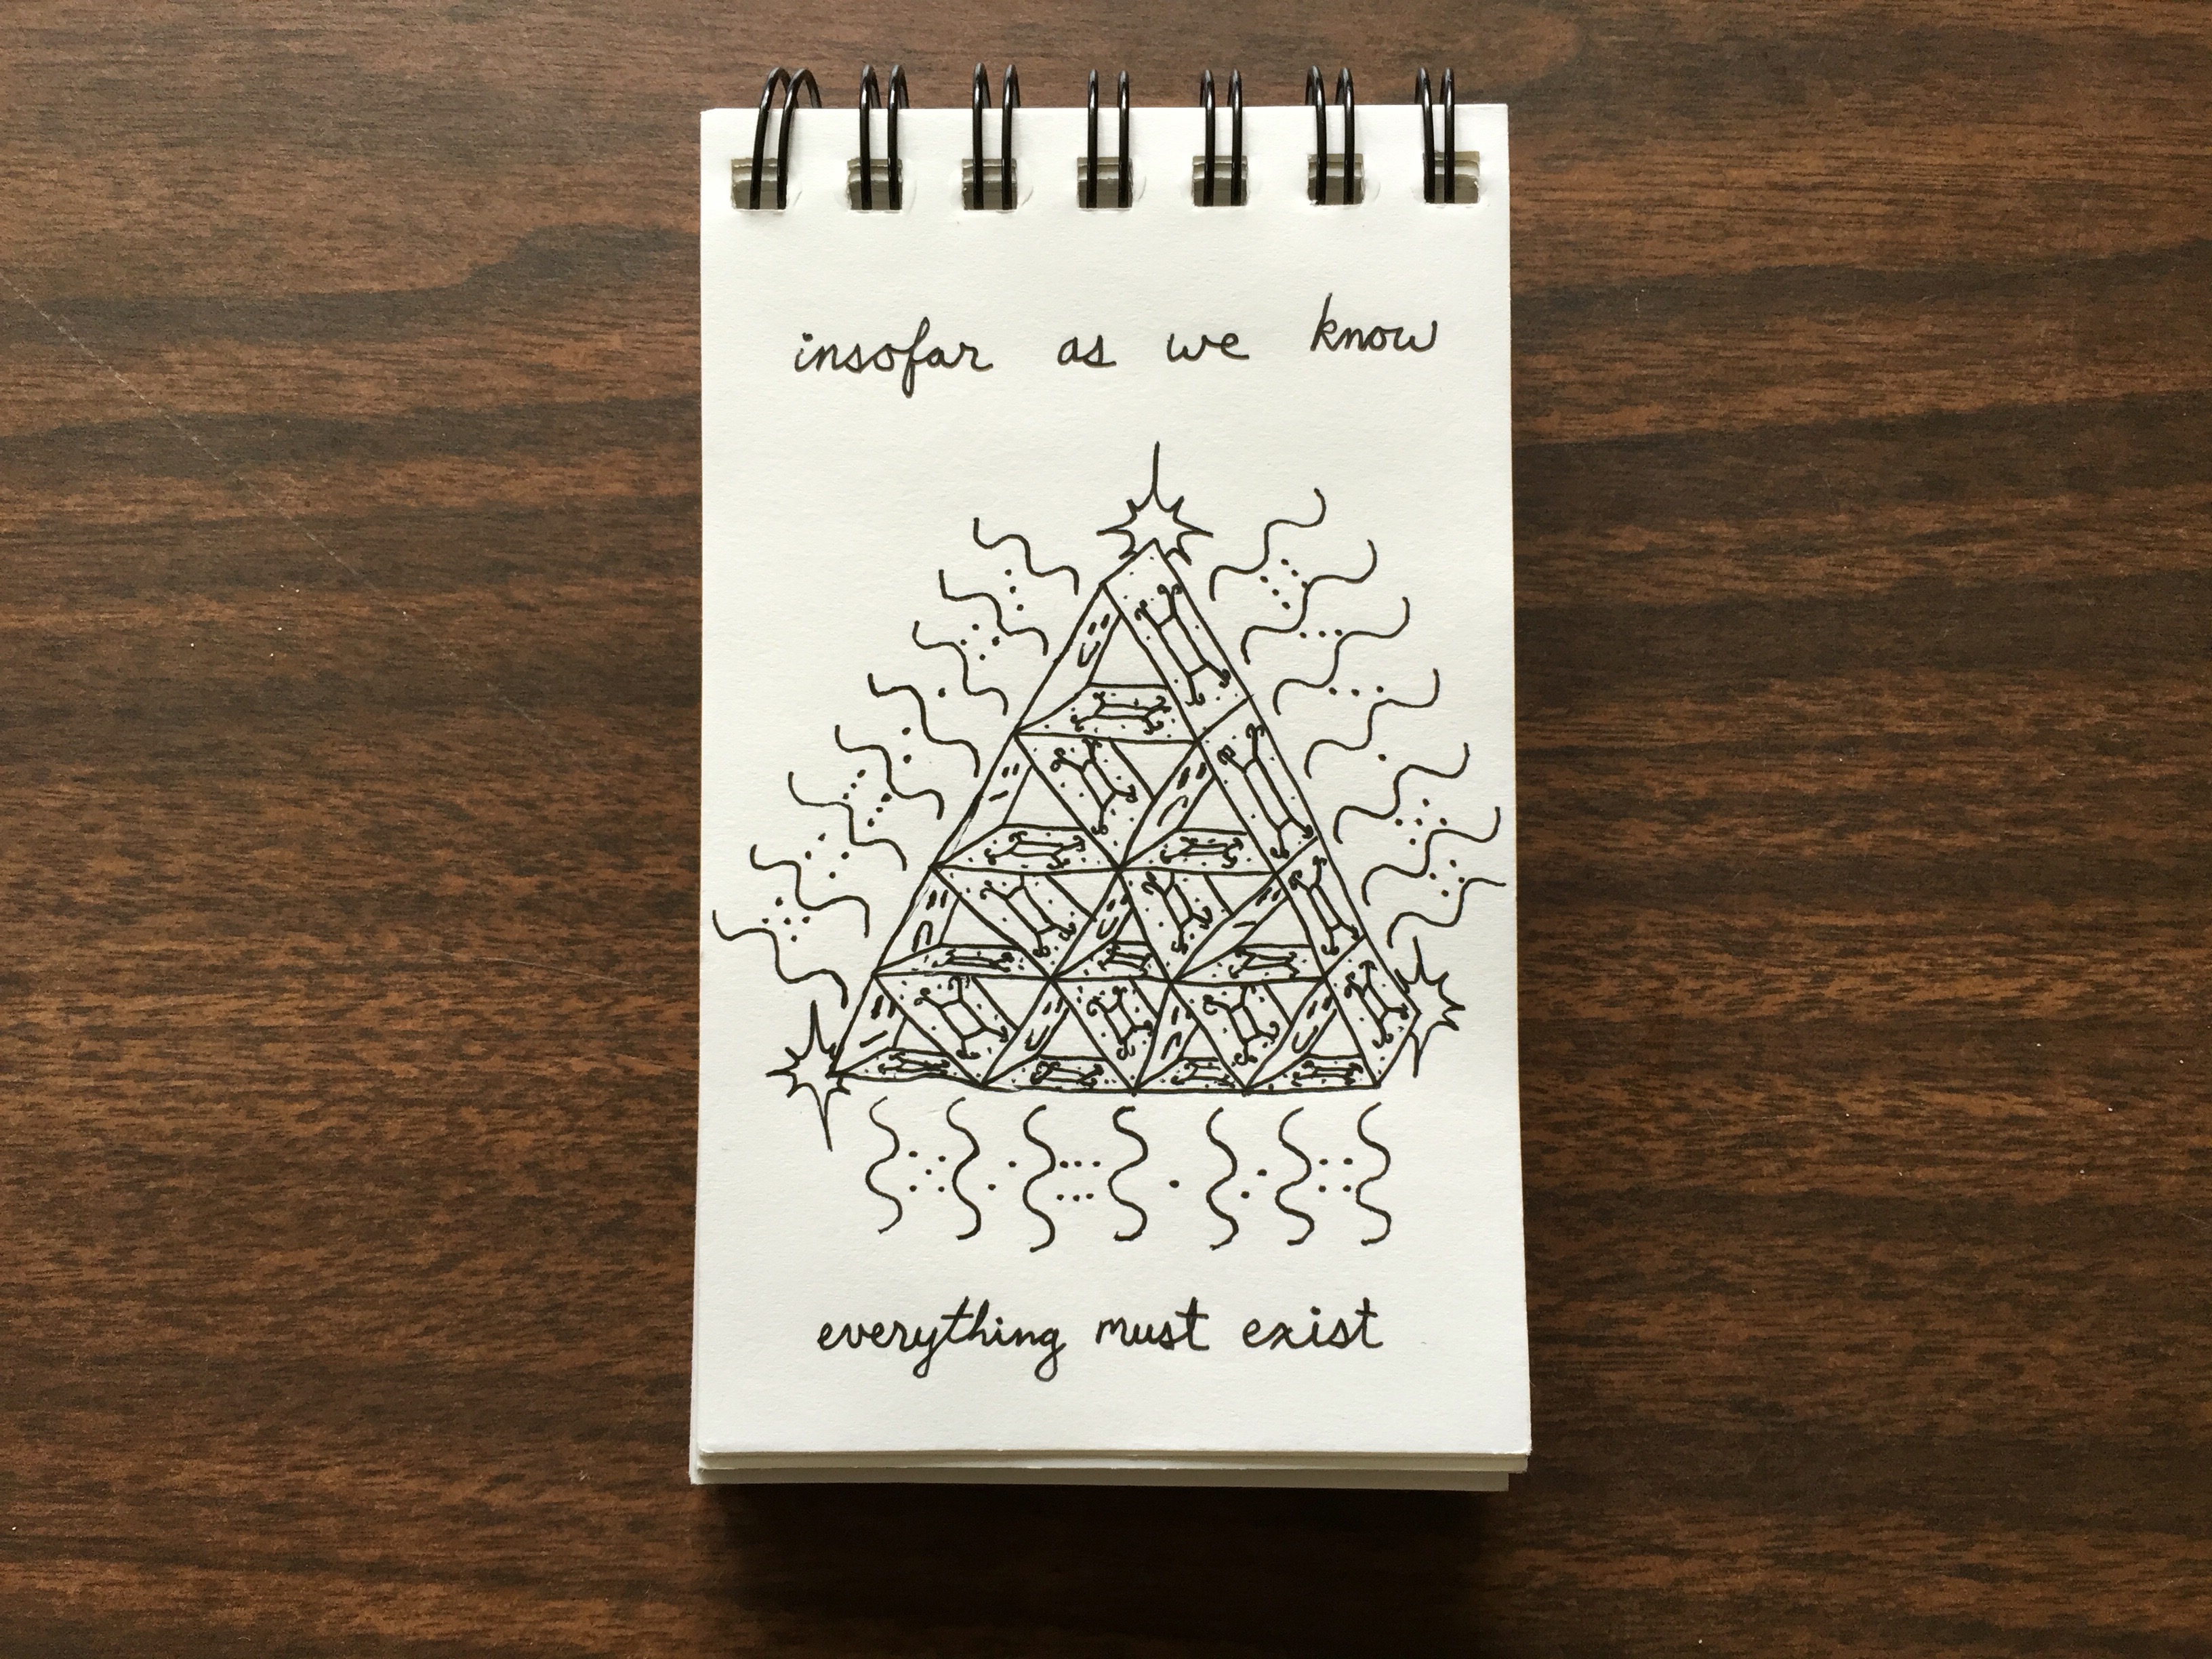 insofar as we know
everything must exist